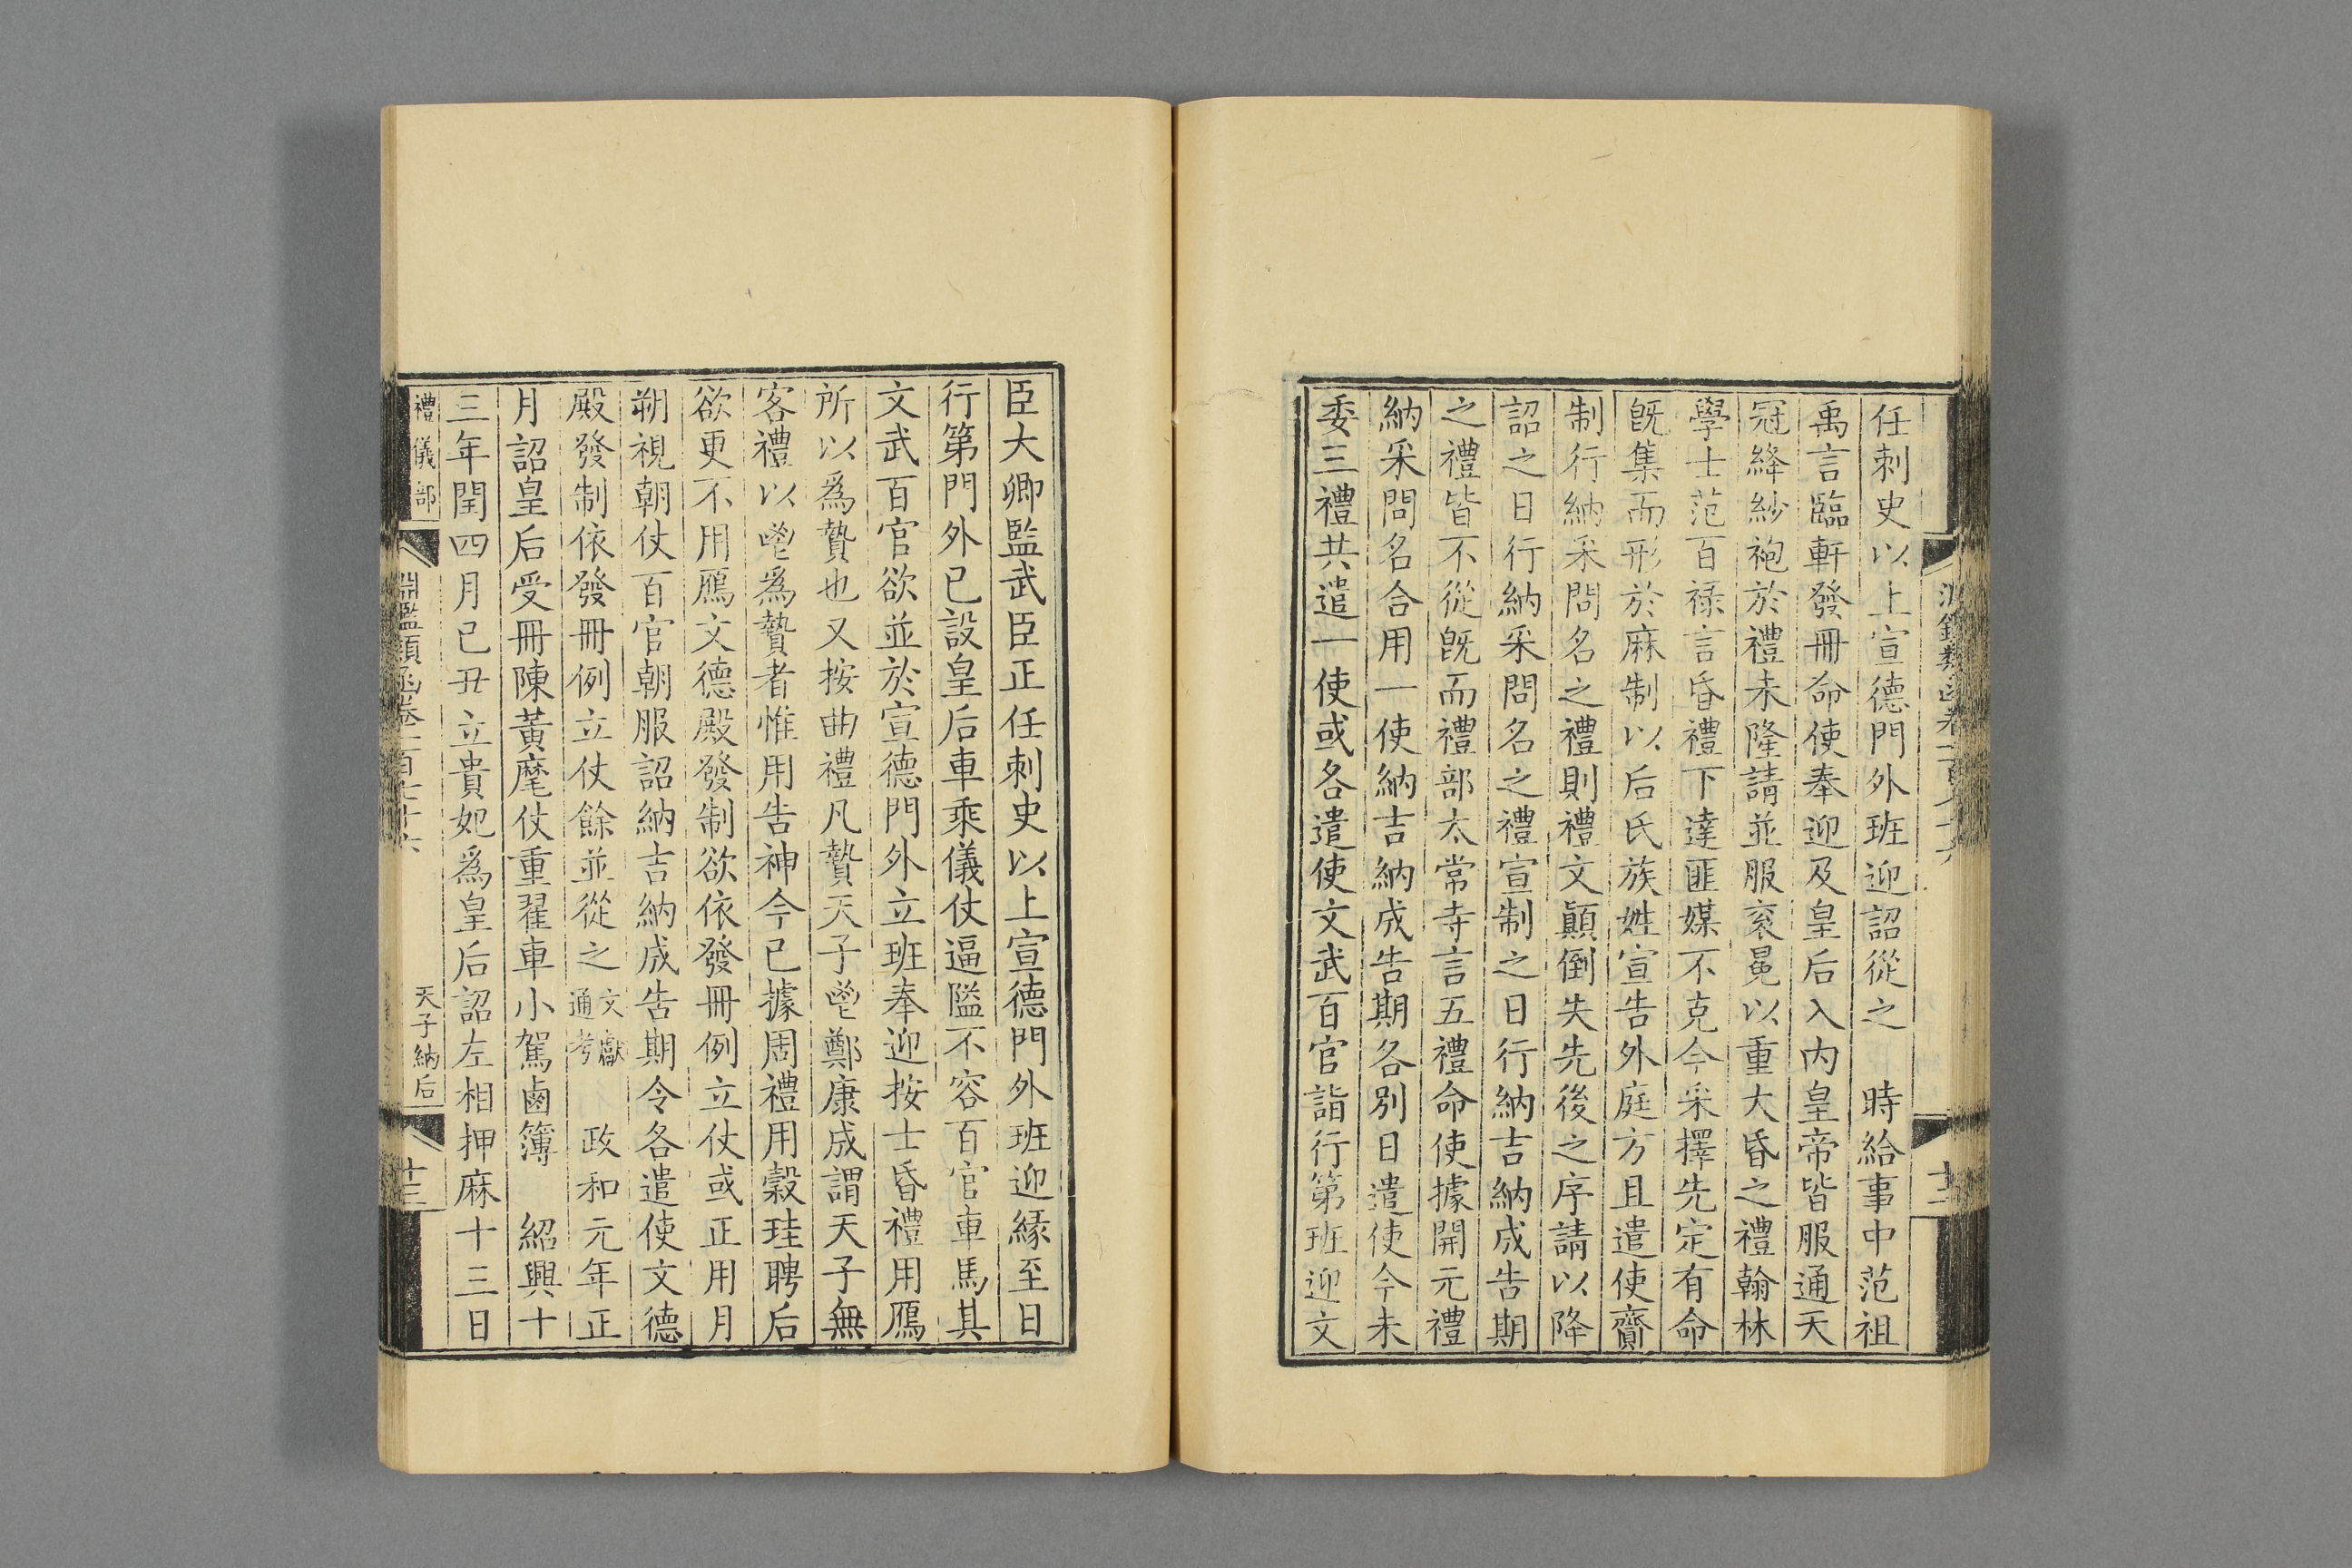 任刺史以上宣德門外班迎詔從之　時給事中范祖
禹言臨軒發冊命使奉迎及皇后入內皇帝皆服通天
冠絳紗袍於禮未隆請並服衮冕以重大昏之禮翰林
學士范百祿言昏禮下達匪媒不克今采擇先定有命
旣集而形於麻制以后氏族姓宣告外庭方且遣使齎
制行納采問名之禮則禮文顛倒失先後之序請以降
詔之日行納采問名之禮宣制之日行納吉納成告期
之禮皆不從旣而禮部太常寺言五禮命使據開元禮
納采問名合用一使納吉納成告期各別日遣使今未
委三禮共遣一使或各遣使文武百官詣行第班迎文
臣大卿監武臣正任刺史以上宣德門外班迎緣至日
行第門外已設皇后車乘儀仗逼隘不容百官車馬其
文武百官欲並於宣德門外立班奉迎按士昏禮用鴈
所以爲贄也又按曲禮凡贄天子鬯鄭康成謂天子無
客禮以鬯爲贄者惟用告神今已據周禮用穀珪聘后
欲更不用鴈文德殿發制欲依發冊例立仗或正用月
朔視朝仗百官朝服詔納吉納成告期令各遣使文德
殿發制依發冊例立仗餘並從之文獻通考　政和元年正
月詔皇后受冊陳黃麾仗重翟車小駕鹵簿　紹興十
三年閏四月己丑立貴妃爲皇后詔左相押麻十三日
禮儀部
淵鑑類函卷一百七十六
天子納后
十三